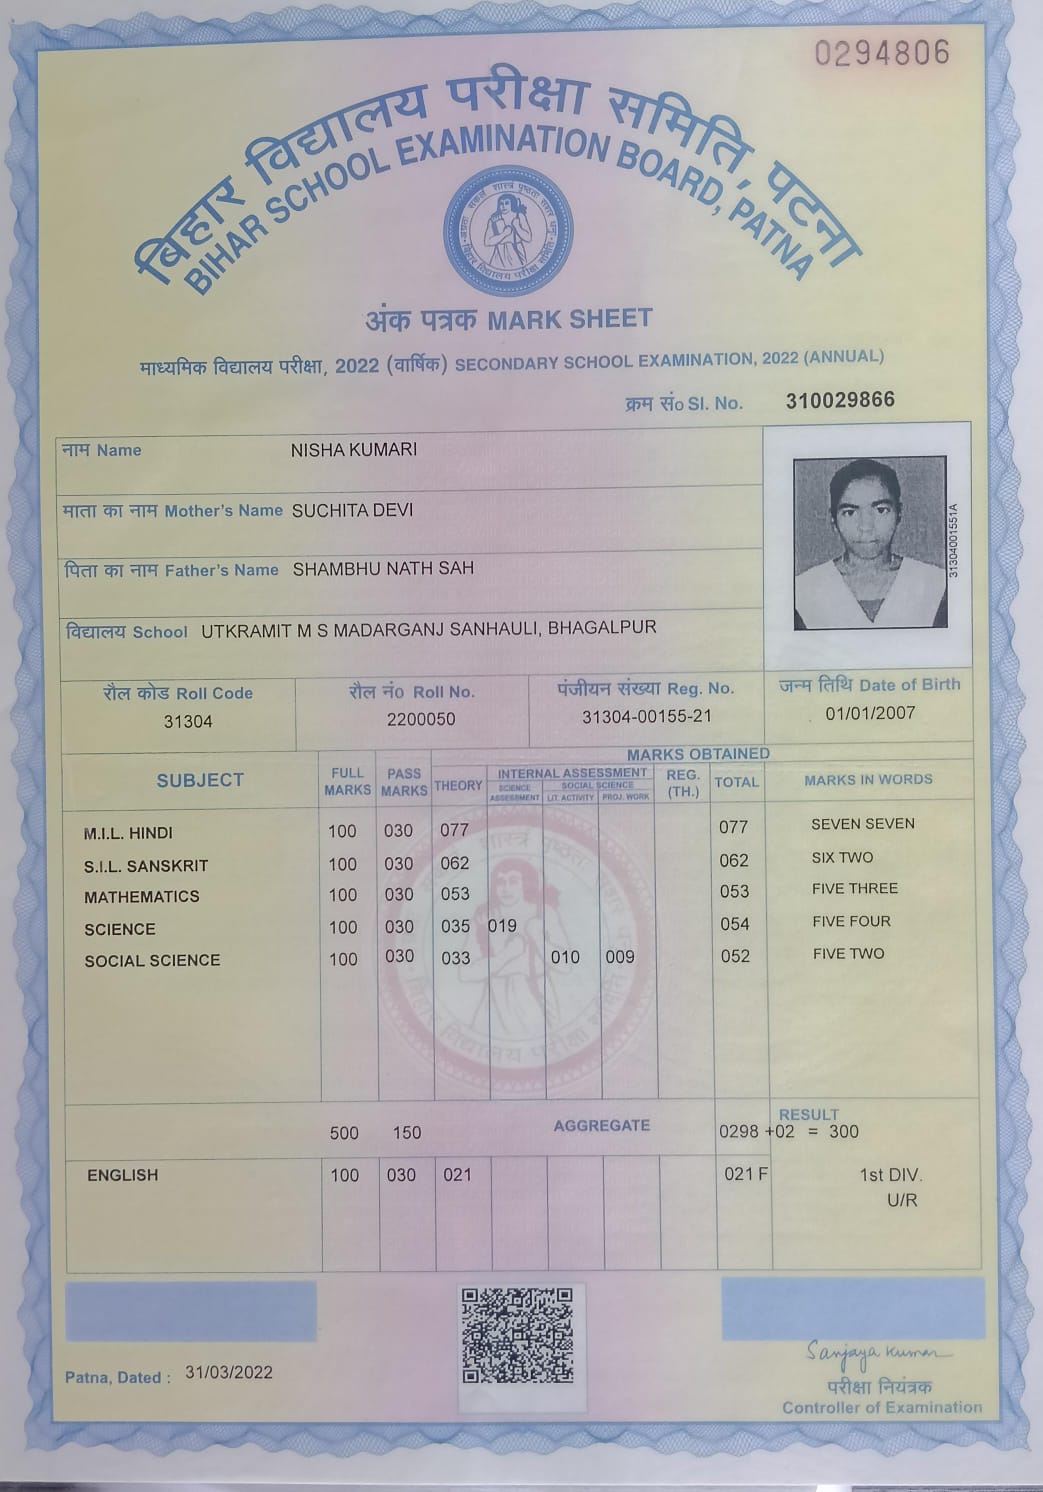 0294806
बिहार विद्यालय परीक्षा समिति, पटना
BIHAR SCHOOL EXAMINATION BOARD, PATNA
अंक पत्रक MARK SHEET
माध्यमिक विद्यालय परीक्षा, 2022 (वार्षिक) SECONDARY SCHOOL EXAMINATION, 2022 (ANNUAL)
क्रम सं० Sl. No. 310029866
नाम Name NISHA KUMARI
माता का नाम Mother's Name SUCHITA DEVI
पिता का नाम Father's Name SHAMBHU NATH SAH
विद्यालय School UTKRAMIT M S MADARGANJ SANHAULI, BHAGALPUR
31304001551A
रौल कोड Roll Code रौल नं० Roll No. पंजीयन संख्या Reg. No. जन्म तिथि Date of Birth
31304 2200050 31304-00155-21 01/01/2007
MARKS OBTAINED
SUBJECT FULL MARKS PASS MARKS THEORY INTERNAL ASSESSMENT SCIENCE ASSESSMENT SOCIAL SCIENCE LIT. ACTIVITY PROJ. WORK REG. (TH.) TOTAL MARKS IN WORDS
M.I.L. HINDI 100 030 077 077 SEVEN SEVEN
S.I.L. SANSKRIT 100 030 062 062 SIX TWO
MATHEMATICS 100 030 053 053 FIVE THREE
SCIENCE 100 030 035 019 054 FIVE FOUR
SOCIAL SCIENCE 100 030 033 010 009 052 FIVE TWO
RESULT
500 150 AGGREGATE 0298 +02 = 300
ENGLISH 100 030 021 021 F 1st DIV.
U/R
Patna, Dated : 31/03/2022
Sanjaya Kumar
परीक्षा नियंत्रक
Controller of Examination